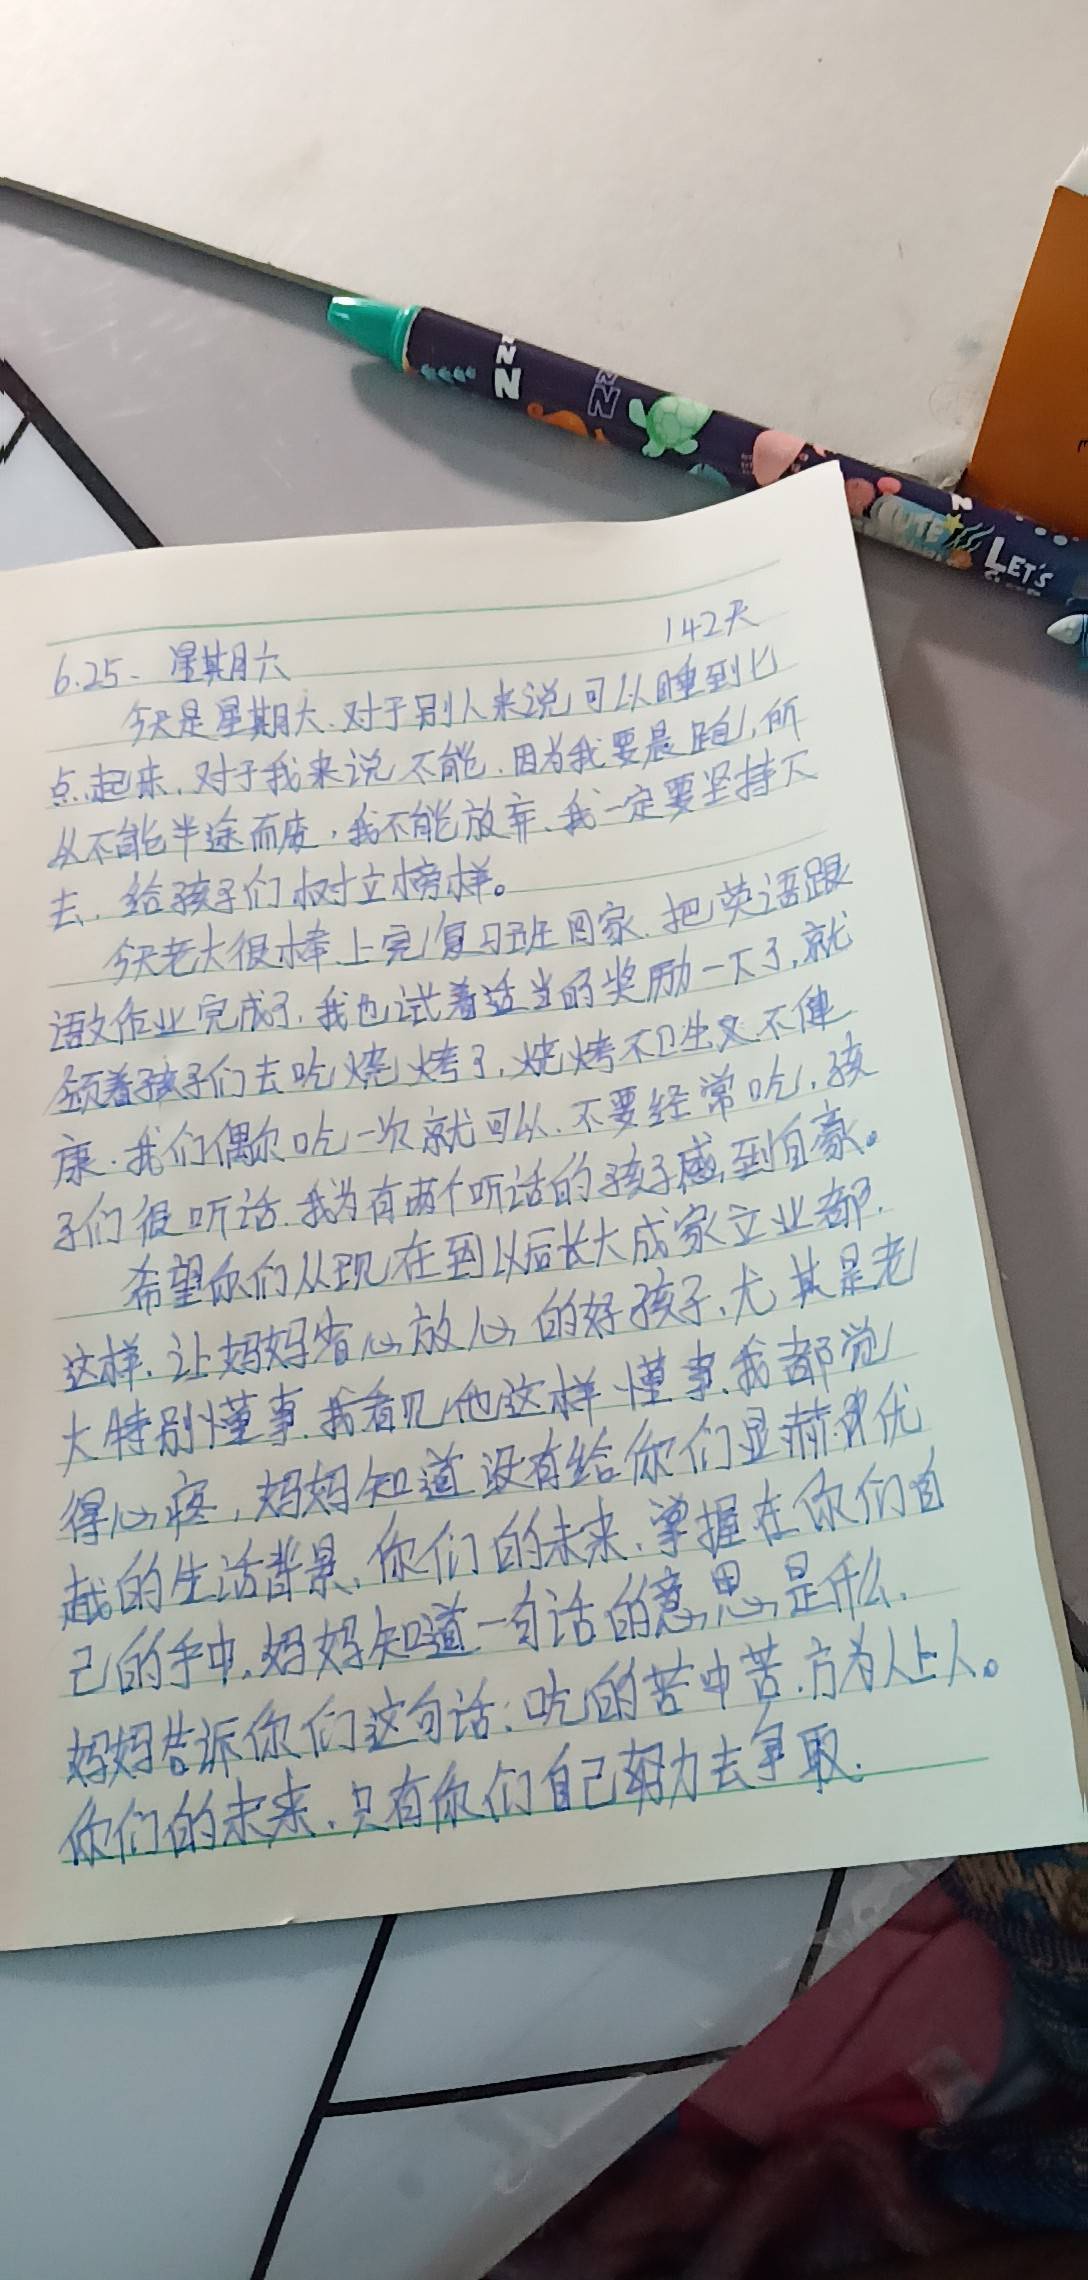 NZZ
NZZ
N
CUTE
LET'S
6.25、星期六 142天
今天是星期六.对于别人来说,可以睡到七
点.起来.对于我来说不能.因为我要晨跑,所
以不能半途而废,我不能放弃.我一定要坚持下
去.给孩子们树立榜样。
今天老大很棒.上完复习班回家.把英语跟
语文作业完成了.我也试着适当的奖励一下了,就
领着孩子们去吃烧烤了,烧烤不卫生又不健
康.我们偶尔吃一次就可以.不要经常吃,孩
子们很听话.我为有两个听话的孩子感到自豪。
希望你们从现在到以后长大成家立业都.
这样.让妈妈省心放心的好孩子.尤其是老
大特别懂事.我看见他这样懂事.我都觉
得心疼,妈妈知道没有给你们显赫优
越的生活背景.你们的未来.掌握在你们自
己的手中.妈妈知道一句话的意思是什么.
妈妈告诉你们这句话:吃的苦中苦.方为人上人。
你们的未来.只有你们自己努力去争取.